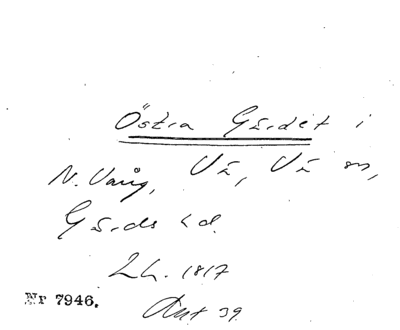 Östra Gärdet i
N. Vång, Vä, Vä sn,
Gärds hd.
LH. 1817
Akt 39
Nr 7946.